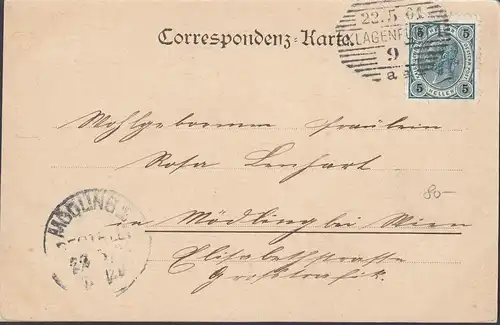 Correspondenz-Karte.
22.5 01
KLAGENFURT
9
a
5 5
HELLER
Wohlgeboren Fräulein
Rosa Lenhart
80-
in Mödling bei Wien
Elisabethstrasse
Grosstrafik.
MÖDLING